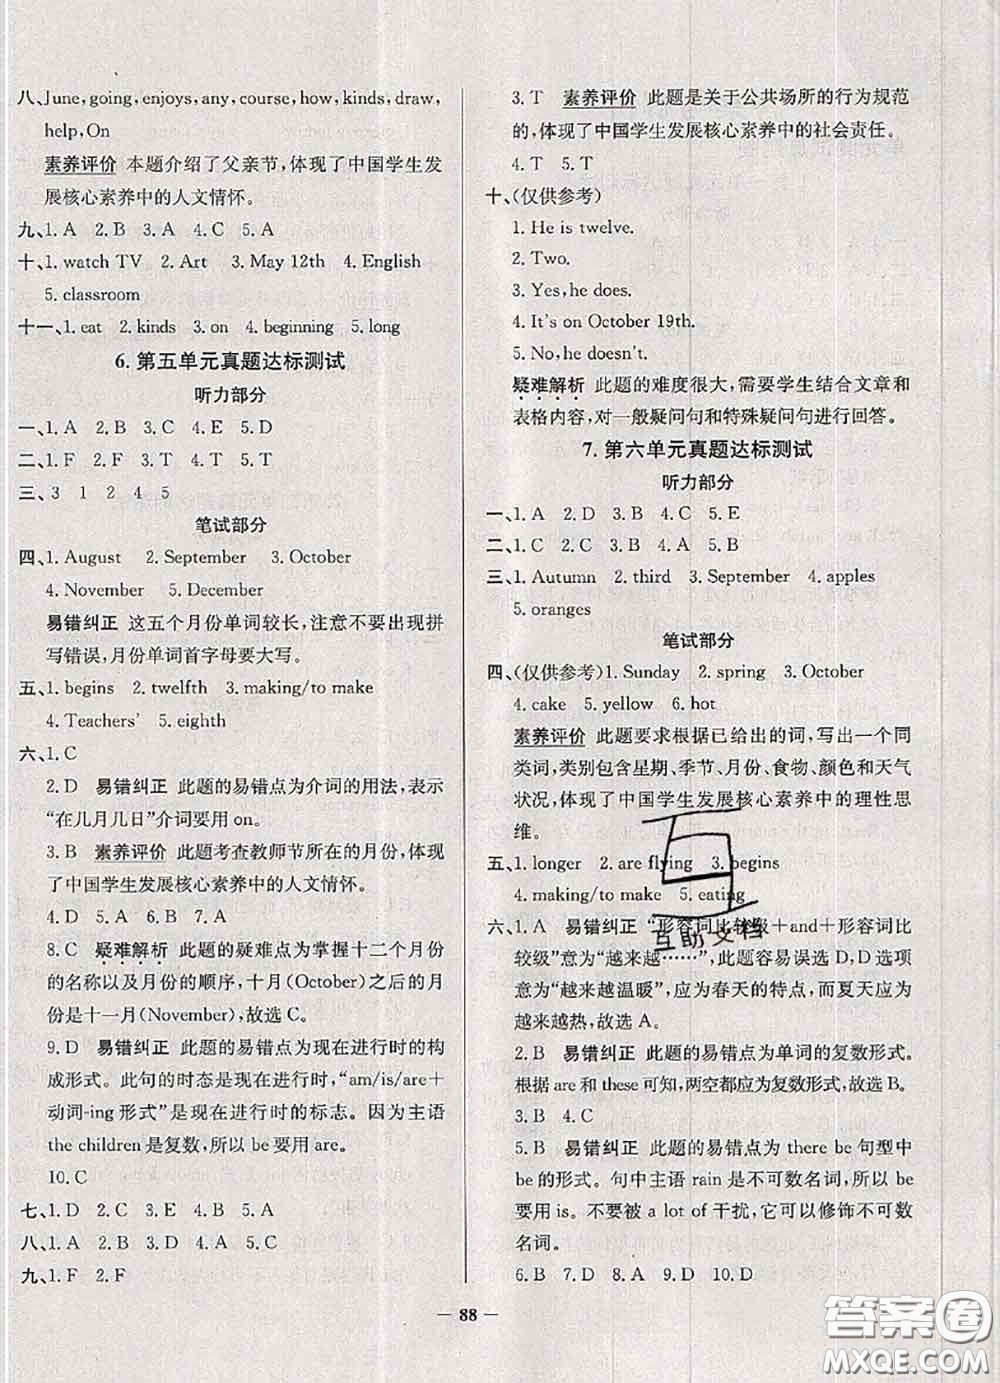 八、June,going,enjoys,any,course,how,kinds,draw,
help,On
素养评价 本题介绍了父亲节,体现了中国学生发
展核心素养中的人文情怀。
九、1. A 2. B 3. A 4. C 5. A
十、1. watch TV 2. Art 3. May 12th 4. English
5. classroom
十一、1. eat 2. kinds 3. on 4. beginning 5. long
6. 第五单元真题达标测试
听力部分
一、1. A 2. B 3. C 4. E 5. D
二、1. F 2. F 3. T 4. T 5. T
三、3 1 2 4 5
笔试部分
四、1. August 2. September 3. October
4. November 5. December
易错纠正 这五个月份单词较长,注意不要出现拼
写错误,月份单词首字母要大写。
五、1. begins 2. twelfth 3. making/to make
4. Teachers' 5. eighth
六、1. C
2. D 易错纠正 此题的易错点为介词的用法,表示
“在几月几日”介词要用on。
3. B 素养评价 此题考查教师节所在的月份,体现
了中国学生发展核心素养中的人文情怀。
4. D 5. A 6. B 7. A
8. C 疑难解析 此题的疑难点为掌握十二个月份
的名称以及月份的顺序,十月(October)之后的月
份是十一月(November),故选C。
9. D 易错纠正 此题的易错点为现在进行时的构
成形式。此句的时态是现在进行时,“am/is/are+
动词-ing形式”是现在进行时的标志。因为主语
the children是复数,所以be要用are。
10. C
七、1. D 2. C 3. E 4. B 5. A
八、1. A 2. B 3. D 4. A 5. C
九、1. F 2. F
3. T 素养评价 此题是关于公共场所的行为规范
的,体现了中国学生发展核心素养中的社会责任。
4. T 5. T
十、(仅供参考)
1. He is twelve.
2. Two.
3. Yes,he does.
4. It's on October 19th.
5. No,he doesn't.
疑难解析 此题的难度很大,需要学生结合文章和
表格内容,对一般疑问句和特殊疑问句进行回答。
7. 第六单元真题达标测试
听力部分
一、1. A 2. D 3. B 4. C 5. E
二、1. C 2. C 3. B 4. A 5. B
三、1. Autumn 2. third 3. September 4. apples
5. oranges
笔试部分
四、(仅供参考)1. Sunday 2. spring 3. October
4. cake 5. yellow 6. hot
素养评价 此题要求根据已给出的词,写出一个同
类词,类别包含星期、季节、月份、食物、颜色和天气
状况,体现了中国学生发展核心素养中的理性思
维。
五、1. longer 2. are flying 3. begins
4. making/to make 5. eating
六、1. A 易错纠正 “形容词比较级+and+形容词比
较级”意为“越来越……”,此题容易误选D,D选项
意为“越来越温暖”,应为春天的特点,而夏天应为
越来越热,故选A。
2. B 易错纠正 此题的易错点为单词的复数形式。
根据are和these可知,两空都应为复数形式,故选B。
3. B 4. C
5. B 易错纠正 此题的易错点为there be句型中
be的形式。句中主语rain是不可数名词,所以be
要用is。不要被a lot of干扰,它可以修饰不可数
名词。
6. B 7. D 8. A 9. A 10. D
— 88 —
互助文档
答案圈
MXQE.COM